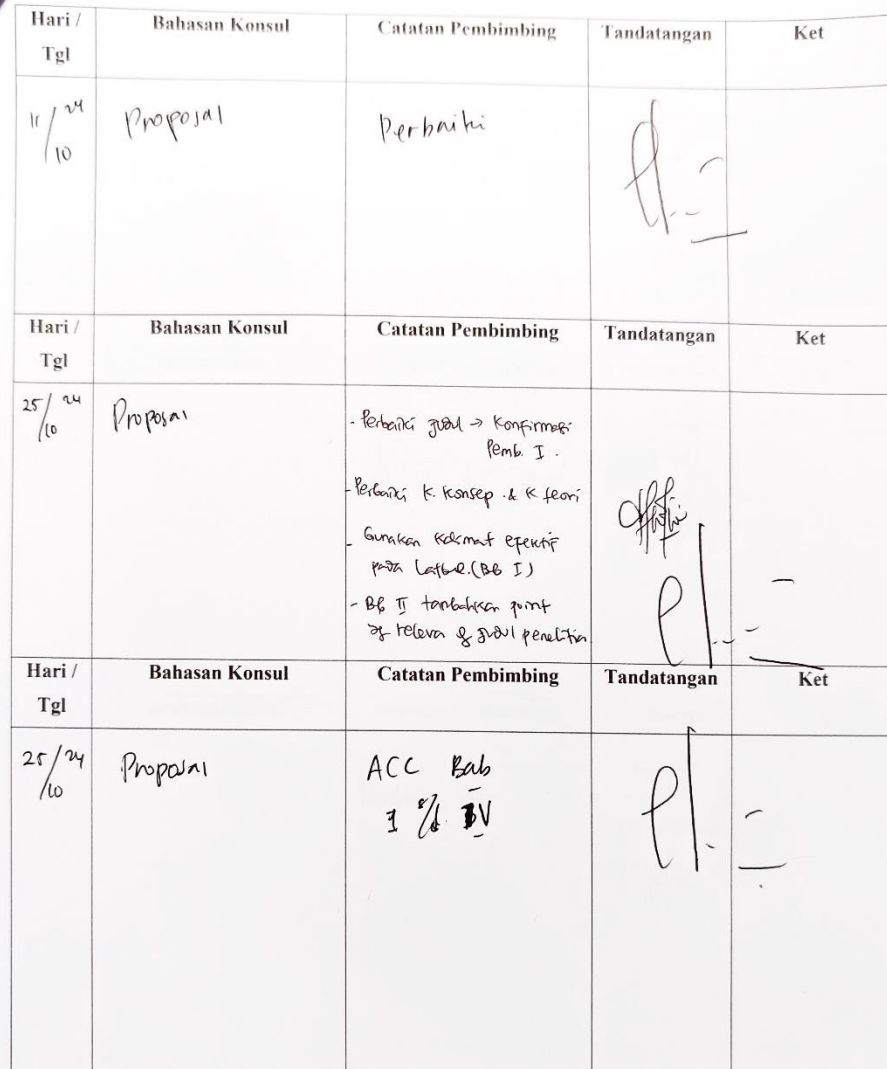 Hari / Tgl Bahasan Konsul Catatan Pembimbing Tandatangan Ket
11/10 24 Proposal Perbaiki
Hari / Tgl Bahasan Konsul Catatan Pembimbing Tandatangan Ket
25/10 24 Proposal
- Perbaiki judul → Konfirmasi
Pemb. I.
- Perbaiki K. Konsep & K teori
- Gunakan kalimat efektif
pada Latbel. (Bb I)
- Bb II tambahkan point
relevan judul penelitian
Hari / Tgl Bahasan Konsul Catatan Pembimbing Tandatangan Ket
25/10 24 Proposal ACC Bab
I s/d IV